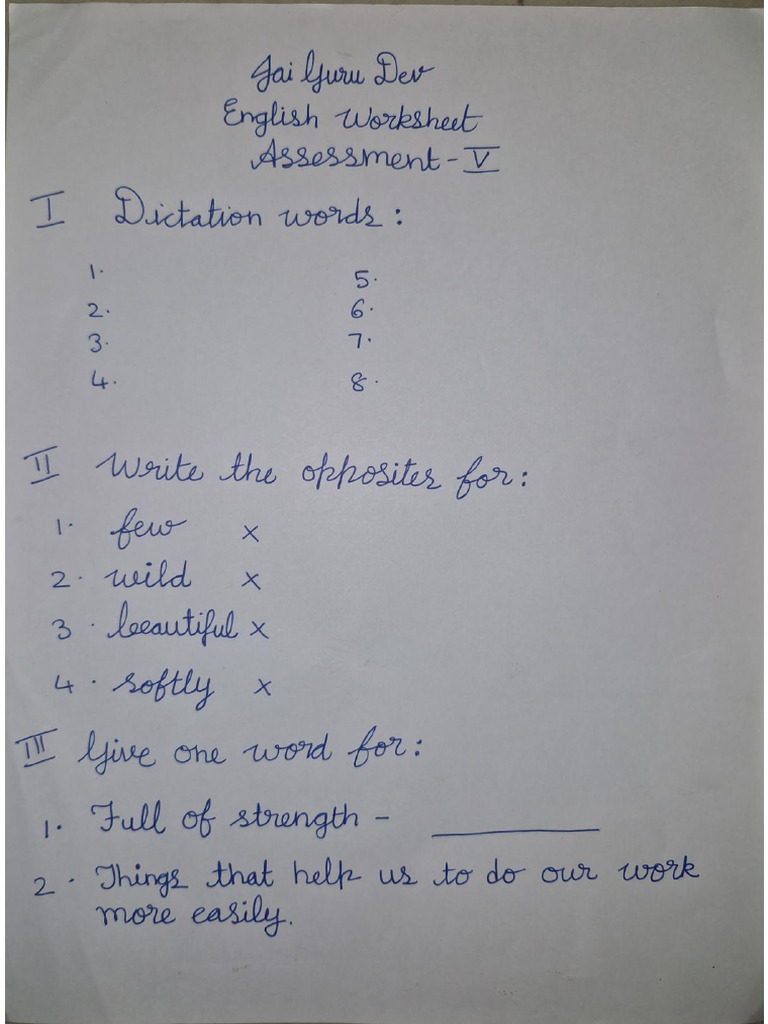 Jai Guru Dev
English Worksheet
Assessment - V
I Dictation words :
1. 5.
2. 6.
3. 7.
4. 8.
II Write the opposites for :
1. few x
2. wild x
3. beautiful x
4. softly x
III Give one word for :
1. Full of strength - __________
2. Things that help us to do our work
more easily.